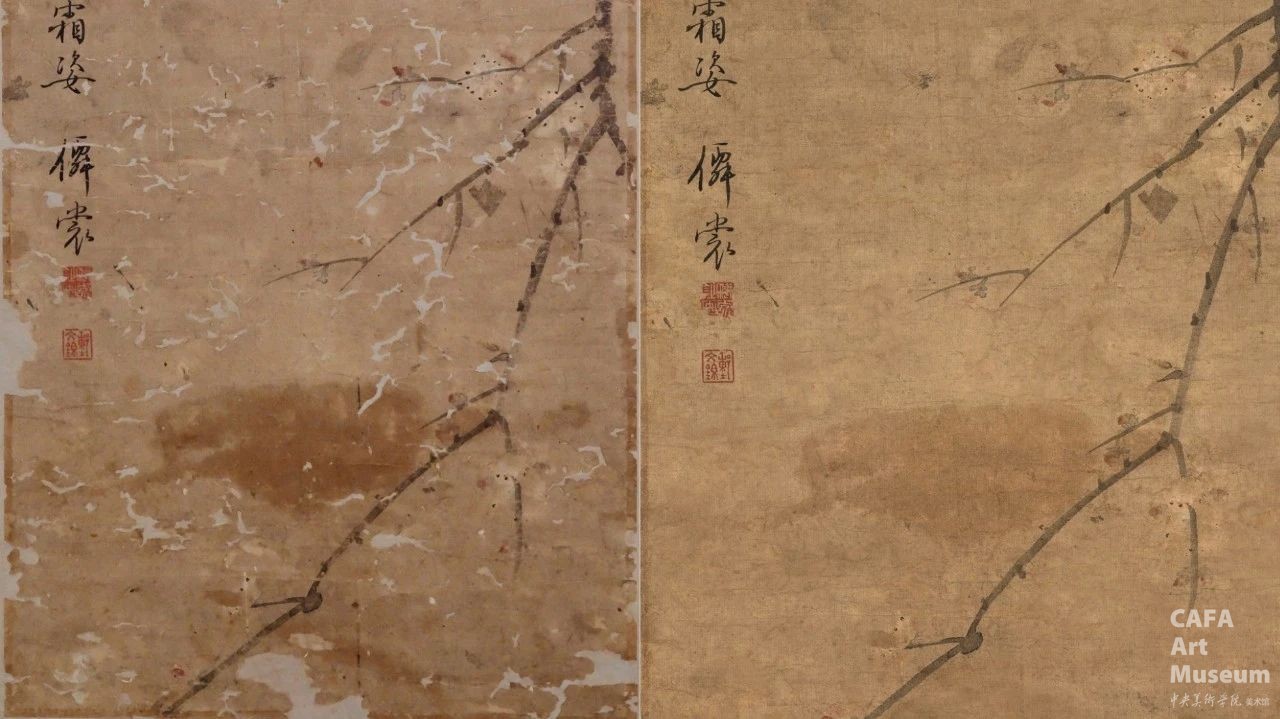 霜姿
僊裳
霜姿
僊裳
CAFA
Art
Museum
中央美術学院 美术馆